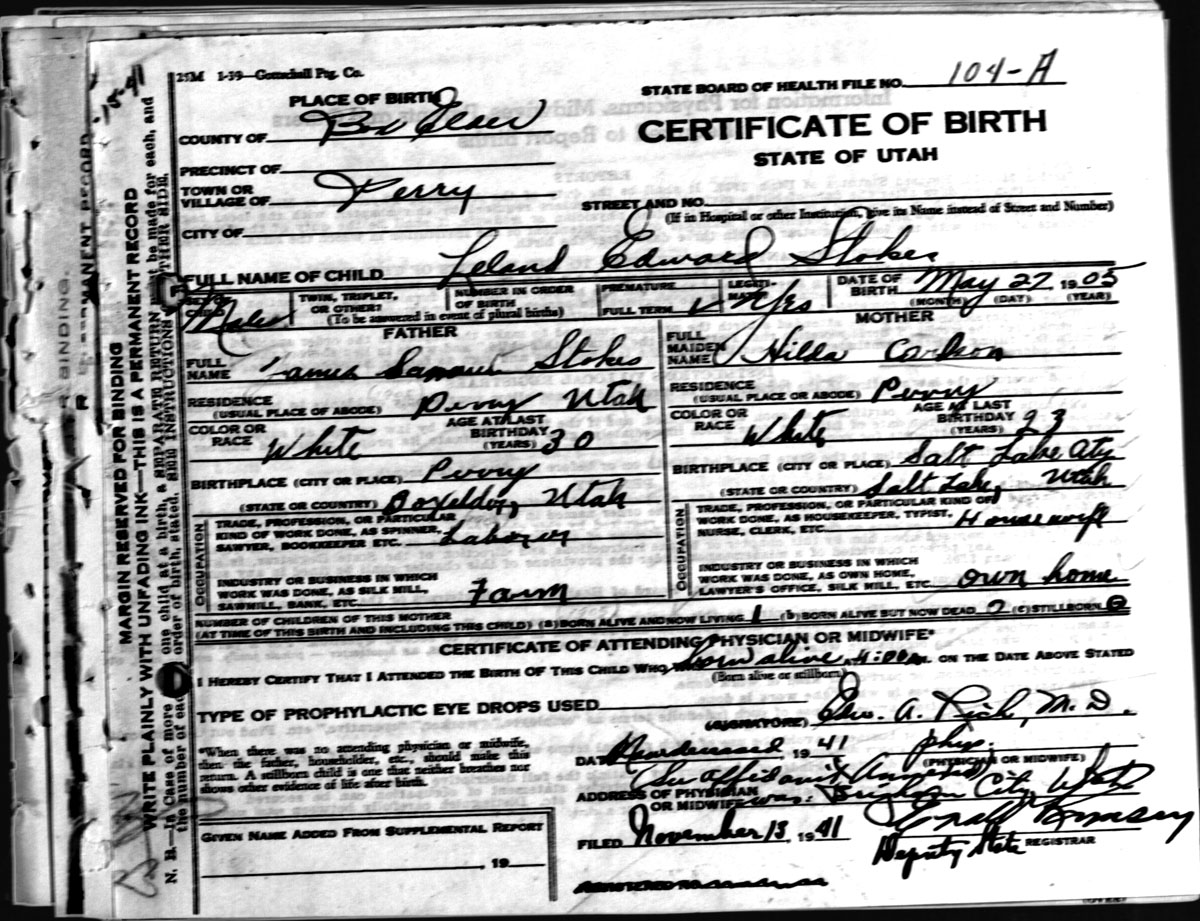 25M 1-39—Gottschall Ptg. Co.
STATE BOARD OF HEALTH FILE NO. 104-A
PLACE OF BIRTH
COUNTY OF Box Elder
CERTIFICATE OF BIRTH
STATE OF UTAH
PRECINCT OF
TOWN OR VILLAGE OF Perry
STREET AND NO.
(If in Hospital or other Institution, give its Name instead of Street and Number)
CITY OF
FULL NAME OF CHILD Leland Edward Stokes
SEX OF CHILD Male
TWIN, TRIPLET, OR OTHER?
NUMBER IN ORDER OF BIRTH
(To be answered in event of plural births)
PREMATURE
FULL TERM
LEGITIMATE? Yes
DATE OF BIRTH May 27 1905
(MONTH) (DAY) (YEAR)
FATHER
FULL NAME James Samuel Stokes
RESIDENCE (USUAL PLACE OF ABODE) Perry Utah
COLOR OR RACE White
AGE AT LAST BIRTHDAY (YEARS) 30
BIRTHPLACE (CITY OR PLACE) Perry
(STATE OR COUNTRY) Boxelder, Utah
OCCUPATION
TRADE, PROFESSION, OR PARTICULAR KIND OF WORK DONE, AS SPINNER, SAWYER, BOOKKEEPER ETC. Laborer
INDUSTRY OR BUSINESS IN WHICH WORK WAS DONE, AS SILK MILL, SAWMILL, BANK, ETC. Farm
MOTHER
FULL MAIDEN NAME Hilda Carlson
RESIDENCE (USUAL PLACE OR ABODE) Perry
COLOR OR RACE White
AGE AT LAST BIRTHDAY (YEARS) 23
BIRTHPLACE (CITY OR PLACE) Salt Lake City
(STATE OR COUNTRY) Salt Lake, Utah
OCCUPATION
TRADE, PROFESSION, OR PARTICULAR KIND OF WORK DONE, AS HOUSEKEEPER, TYPIST, NURSE, CLERK, ETC. Housewife
INDUSTRY OR BUSINESS IN WHICH WORK WAS DONE, AS OWN HOME, LAWYER'S OFFICE, SILK MILL, ETC. own home
NUMBER OF CHILDREN OF THIS MOTHER
(AT TIME OF THIS BIRTH AND INCLUDING THIS CHILD) (a) BORN ALIVE AND NOW LIVING 1 (b) BORN ALIVE BUT NOW DEAD (c) STILLBORN 0
CERTIFICATE OF ATTENDING PHYSICIAN OR MIDWIFE*
I HEREBY CERTIFY THAT I ATTENDED THE BIRTH OF THIS CHILD WHO WAS born alive AT 4:00 M. ON THE DATE ABOVE STATED
(Born alive or stillborn)
TYPE OF PROPHYLACTIC EYE DROPS USED
(SIGNATURE) Edw. A. Rich, M.D.
*When there was no attending physician or midwife, then the father, householder, etc., should make this return. A stillborn child is one that neither breathes nor shows other evidence of life after birth.
DATE 1941 phys.
(PHYSICIAN OR MIDWIFE)
See Affidavit Annexed
ADDRESS OF PHYSICIAN OR MIDWIFE was: Brigham City, Utah
GIVEN NAME ADDED FROM SUPPLEMENTAL REPORT
, 19
FILED November 13, 1941
Deputy State REGISTRAR
REGISTERED NO.
MARGIN RESERVED FOR BINDING
WRITE PLAINLY WITH UNFADING INK—THIS IS A PERMANENT RECORD
N. B.—In Case of more than one child at a birth, a SEPARATE RETURN must be made for each, and the number of each, in order of birth, stated. SEE INSTRUCTIONS ON OTHER SIDE.